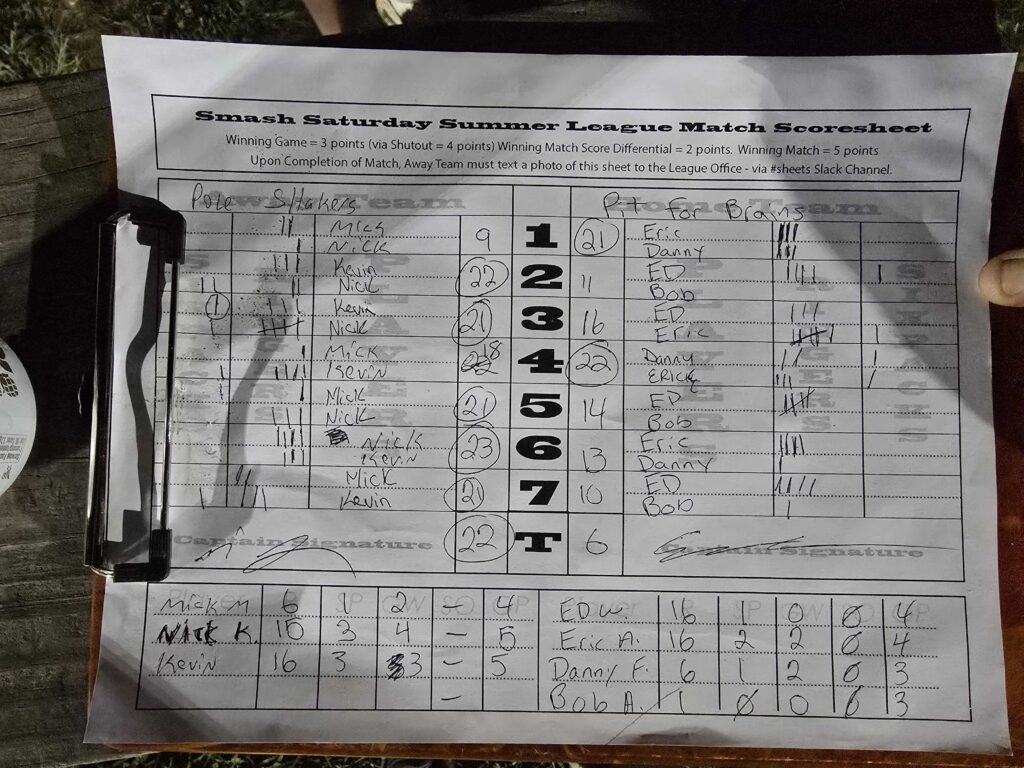 Smash Saturday Summer League Match Scoresheet
Winning Game = 3 points (via Shutout = 4 points) Winning Match Score Differential = 2 points. Winning Match = 5 points
Upon Completion of Match, Away Team must text a photo of this sheet to the League Office - via #sheets Slack Channel.
Pole SHakers Pit for Brains
Mick 9 1 21 Eric
Nick Danny
Kevin 22 2 11 ED
Nick Bob
Kevin 21 3 16 ED
Nick Eric
Mick 18 4 22 Danny
Kevin ERICK
Mick 21 5 14 ED
Nick Bob
Nick 23 6 13 Eric
Kevin Danny
Mick 21 7 10 ED
Kevin Bob
22 T 6
Captain Signature Captain Signature
Mick M 6 1 2 - 4 ED W. 16 1 0 0 4
Nick K. 15 3 4 - 5 Eric A. 16 2 2 0 4
Kevin 16 3 3 - 5 Danny F. 6 1 2 0 3
- Bob A. 1 0 0 0 3